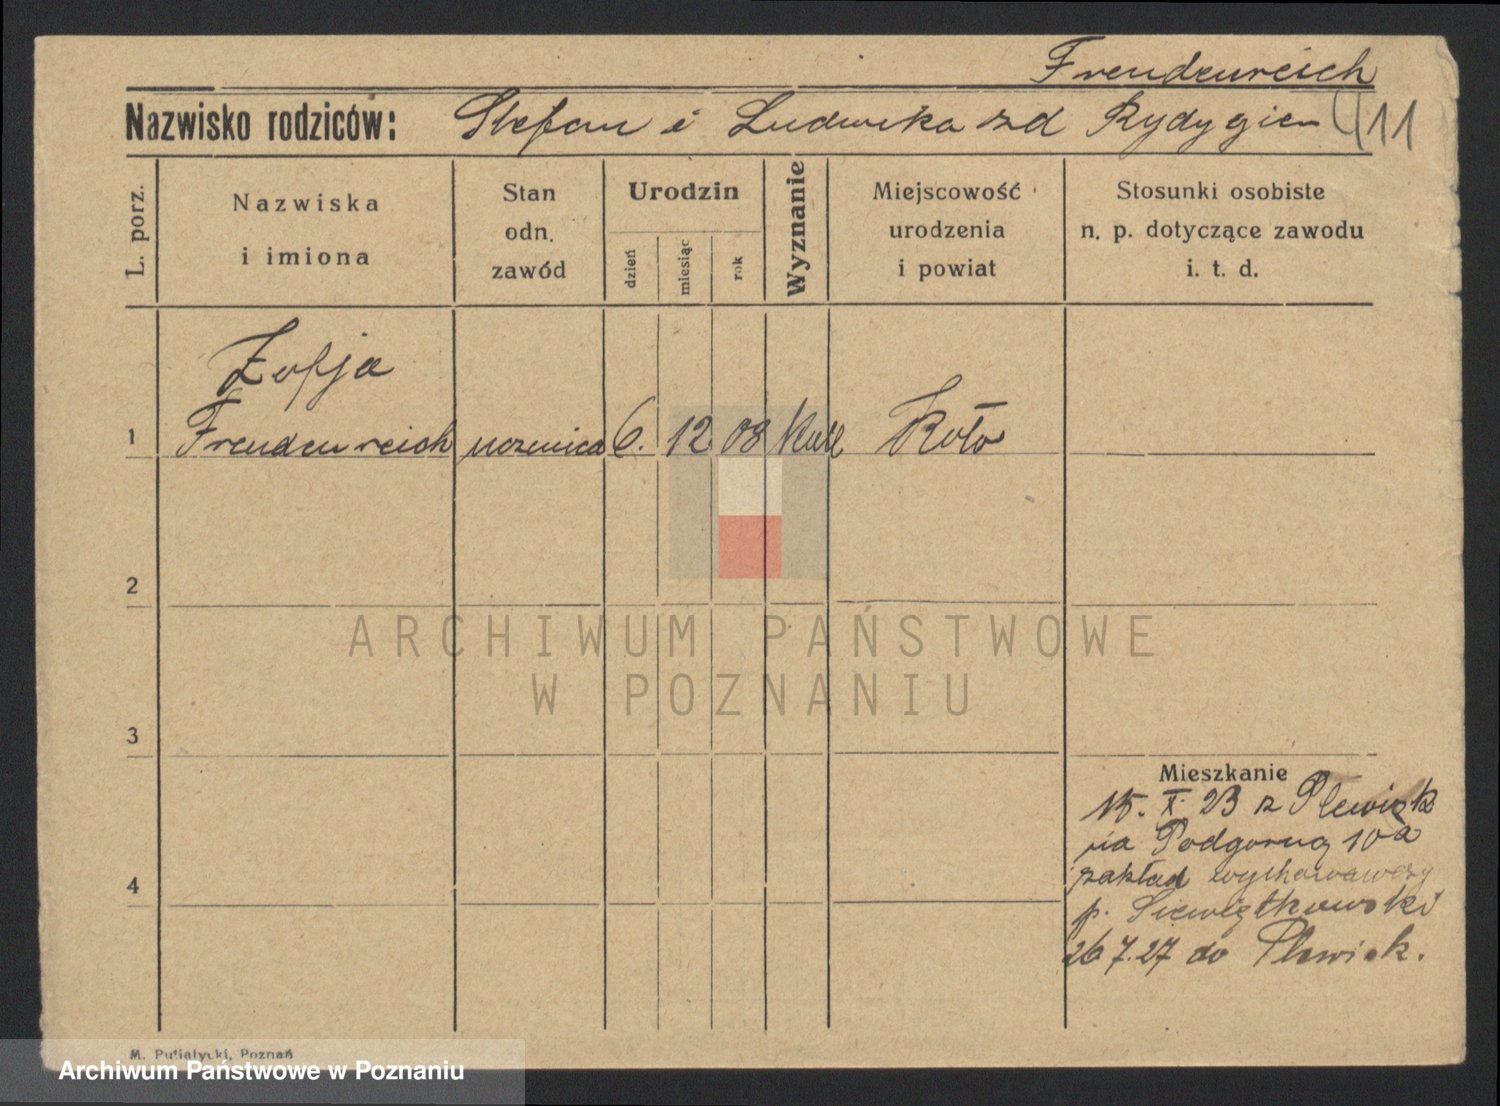 Freudenreich
Nazwisko rodziców: Stefan i Ludwika zd Rydygier 11
L. porz.
Nazwiska
i imiona
Stan
odn.
zawód
Urodzin
dzień
miesiąc
rok
Wyznanie
Miejscowość
urodzenia
i powiat
Stosunki osobiste
n. p. dotyczące zawodu
i. t. d.
Zofja
1 Freudenreich uczenica 6. 12 08 Kat Koło
2
ARCHIWUM PAŃSTWOWE
W POZNANIU
3
Mieszkanie
15. X. 23 z Plewisk
na Podgorną 10a
4 zakład wychowawczy
p. Siewiątkowski
26 7.27 do Plewisk.
M. Putiatycki, Poznań
Archiwum Państwowe w Poznaniu